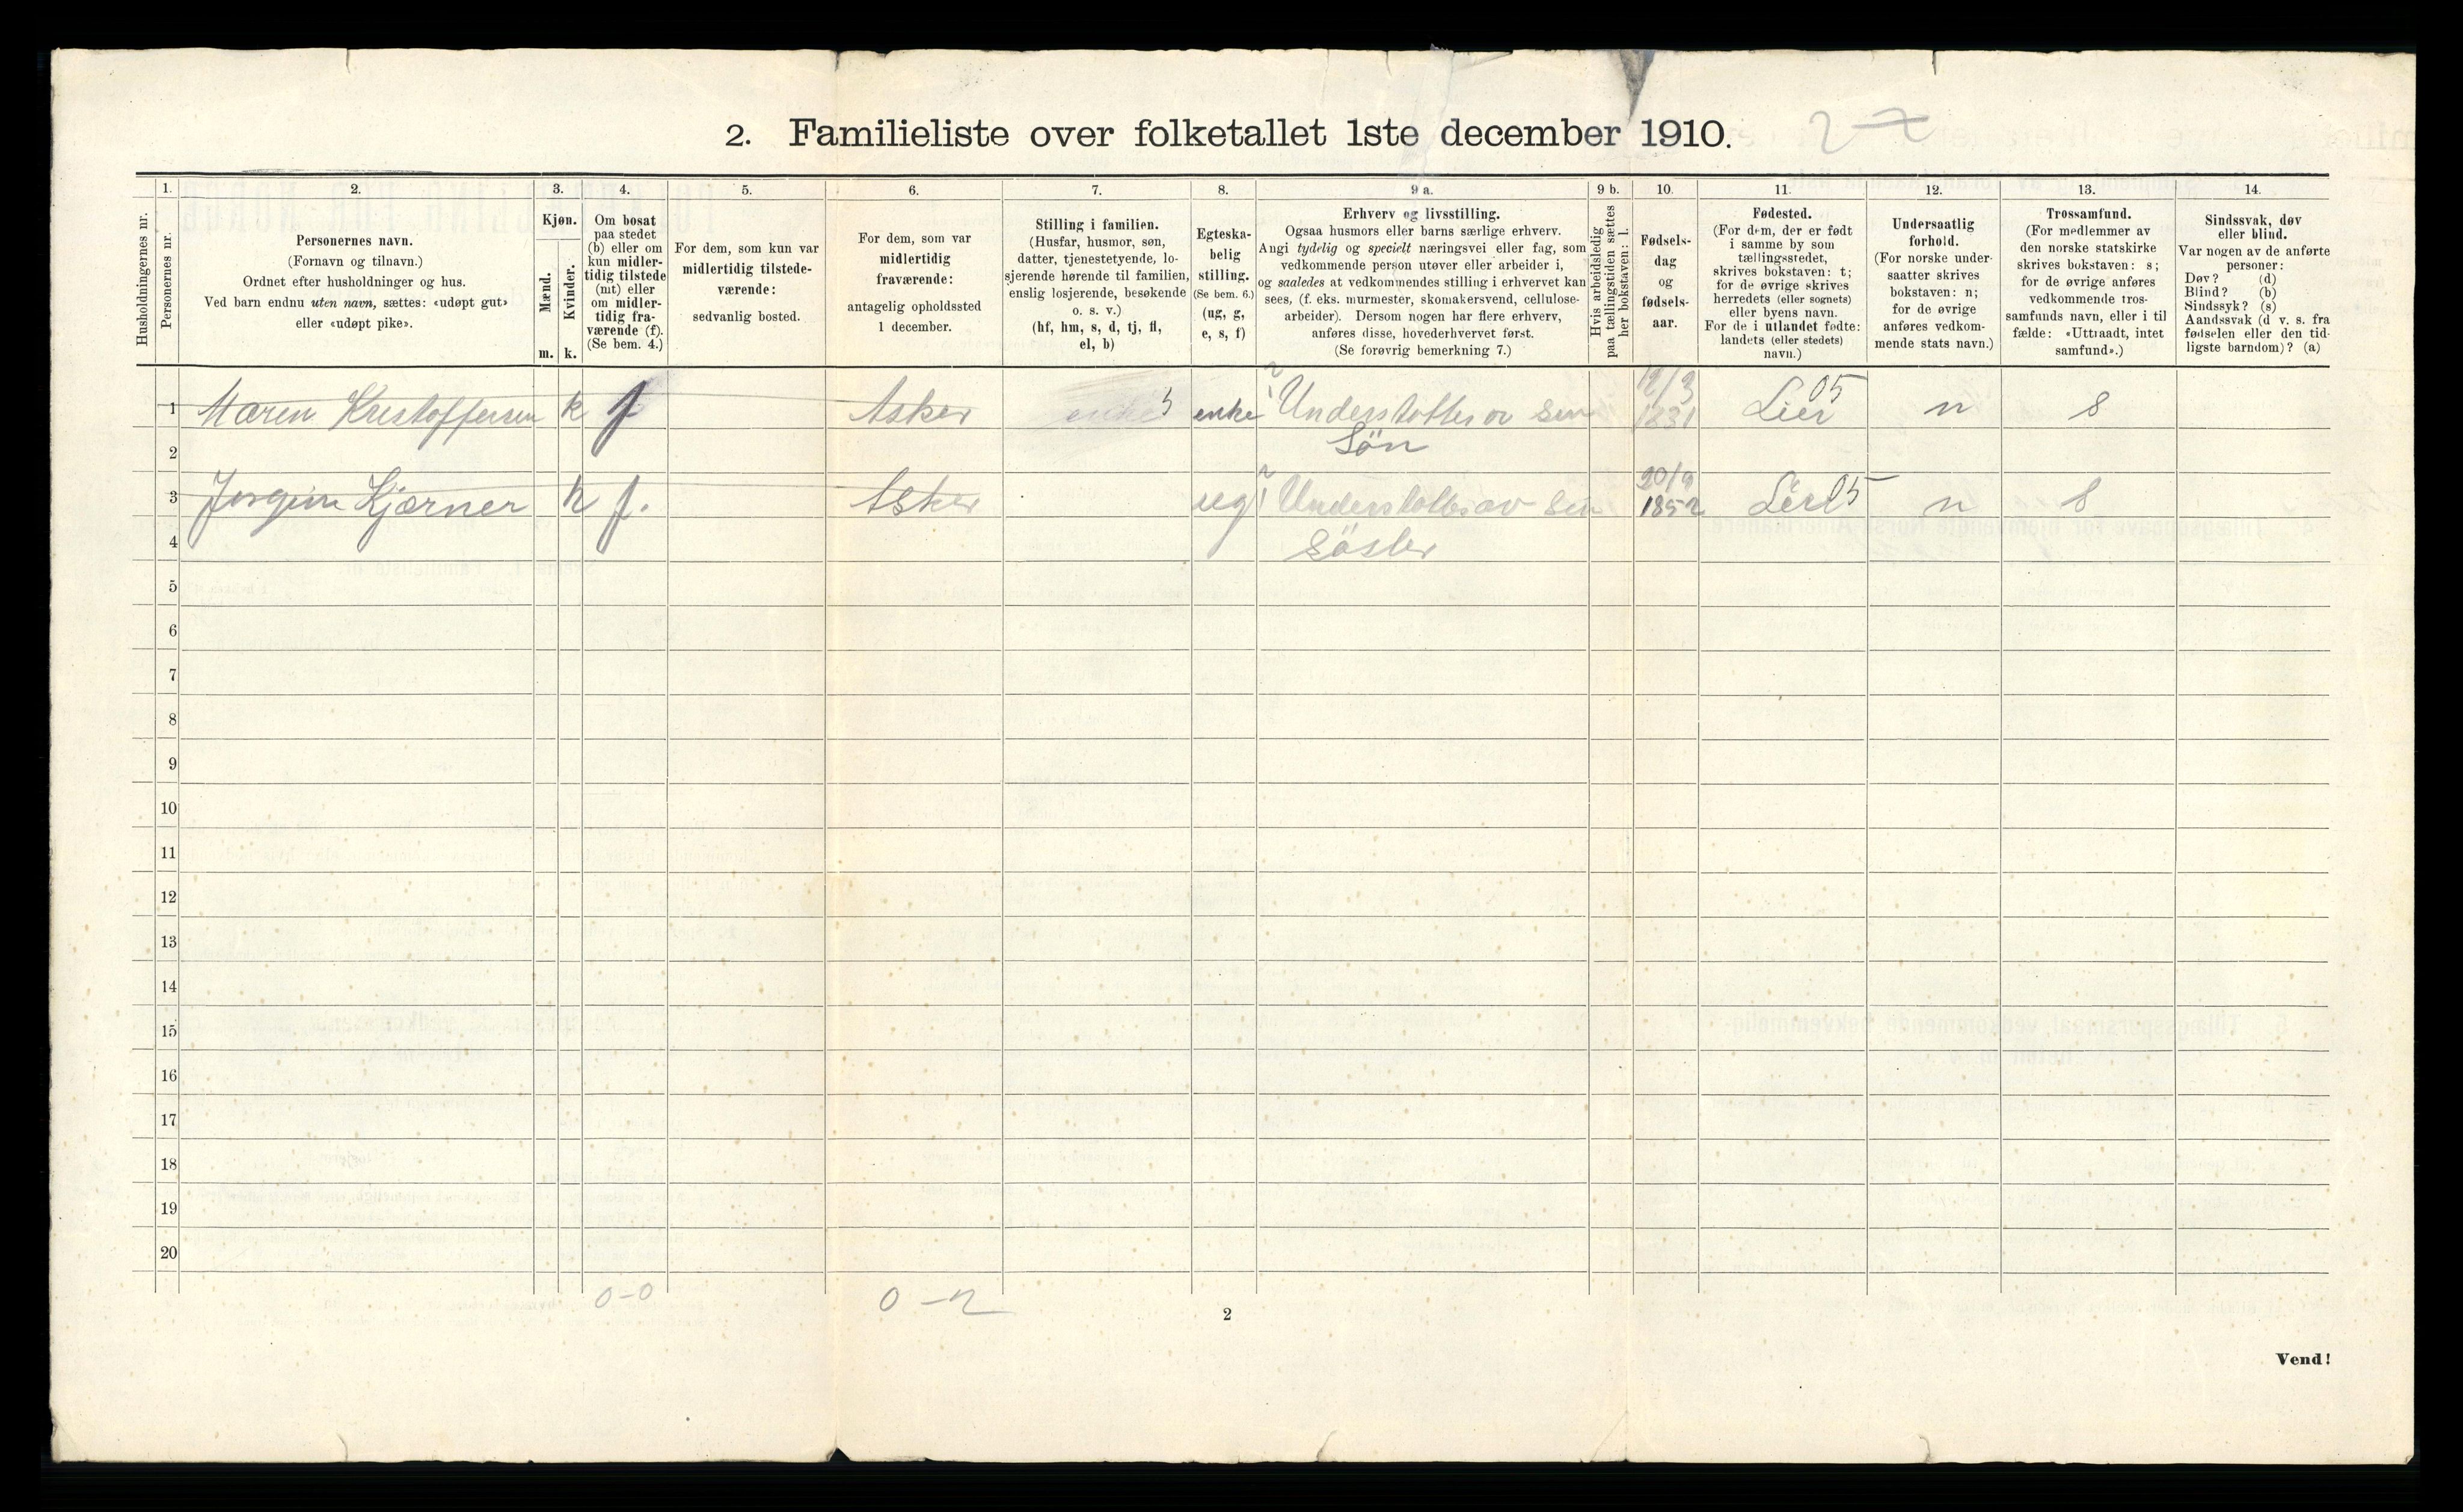 2. Familieliste over folketallet 1ste december 1910.
1. 2. 3. 4. 5. 6. 7. 8. 9 a. 9 b. 10. 11. 12. 13. 14.
Husholdningernes nr.
Personernes nr.
Personernes navn.
(Fornavn og tilnavn.)
Ordnet efter husholdninger og hus.
Ved barn endnu uten navn, sættes: «udøpt gut»
eller «udøpt pike».
Kjøn.
Mænd.
Kvinder.
m. k.
Om bosat
paa stedet
(b) eller om
kun midler-
tidig tilstede
(mt) eller
om midler-
tidig fra-
værende (f).
(Se bem. 4.)
For dem, som kun var
midlertidig tilstede-
værende:
sedvanlig bosted.
For dem, som var
midlertidig
fraværende:
antagelig opholdssted
1 december.
Stilling i familien.
(Husfar, husmor, søn,
datter, tjenestetyende, lo-
sjerende hørende til familien,
enslig losjerende, besøkende
o. s. v.)
(hf, hm, s, d, tj, fl,
el, b)
Egteska-
belig
stilling.
(Se bem. 6.)
(ug, g,
e, s, f)
Erhverv og livsstilling.
Ogsaa husmors eller barns særlige erhverv.
Angi tydelig og specielt næringsvei eller fag, som
vedkommende person utøver eller arbeider i,
og saaledes at vedkommendes stilling i erhvervet kan
sees, (f. eks. murmester, skomakersvend, cellulose-
arbeider). Dersom nogen har flere erhverv,
anføres disse, hovederhvervet først.
(Se forøvrig bemerkning 7.)
Hvis arbeidsledig
paa tællingstiden sættes
her bokstaven: l.
Fødsels-
dag
og
fødsels-
aar.
Fødested.
(For dem, der er født
i samme by som
tællingsstedet,
skrives bokstaven: t;
for de øvrige skrives
herredets (eller sognets)
eller byens navn.
For de i utlandet fødte:
landets (eller stedets)
navn.)
Undersaatlig
forhold.
(For norske under-
saatter skrives
bokstaven: n;
for de øvrige
anføres vedkom-
mende stats navn.)
Trossamfund.
(For medlemmer av
den norske statskirke
skrives bokstaven: s;
for de øvrige anføres
vedkommende tros-
samfunds navn, eller i til
fælde: «Uttraadt, intet
samfund».)
Sindssvak, døv
eller blind.
Var nogen av de anførte
personer:
Døv? (d)
Blind? (b)
Sindssyk? (s)
Aandssvak (d v. s. fra
fødselen eller den tid-
ligste barndom)? (a)
1 Maren Kristoffersen k f Asker enke Understøttes av sin 12/3 1831 Lier 05 n s
2 Søn
3 Jørgine Kjærner k f. Asker ug Understøttes av sin 20/9 1852 Lier 05 n s
4 Søster
5
6
7
8
9
10
11
12
13
14
15
16
17
18
19
20
0-0 0-2
2
Vend!